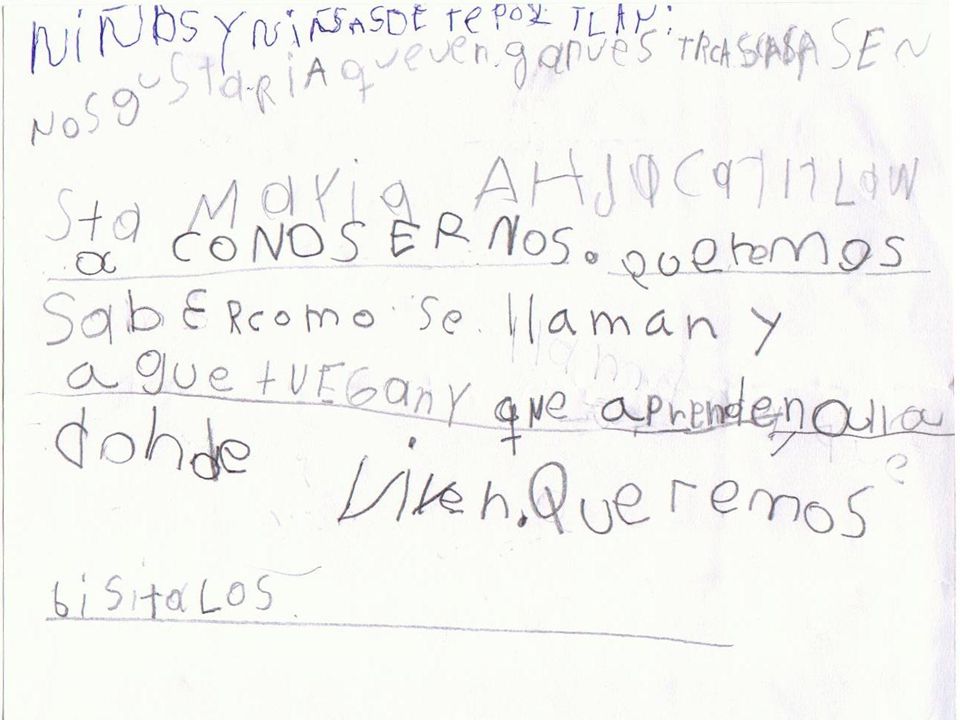 NiÑOS Y NiÑSASDE TePOZ TLAN:
NOS guStaRiA quevengan ues TRA CASA SEN
Sta MaYia AHJOCatITLaN
a CONOSERNOS. queremos
SabERcomo se llaman y
a que tUEGany que aprenden alla
donde Viven. Queremos
bisitaLOS.